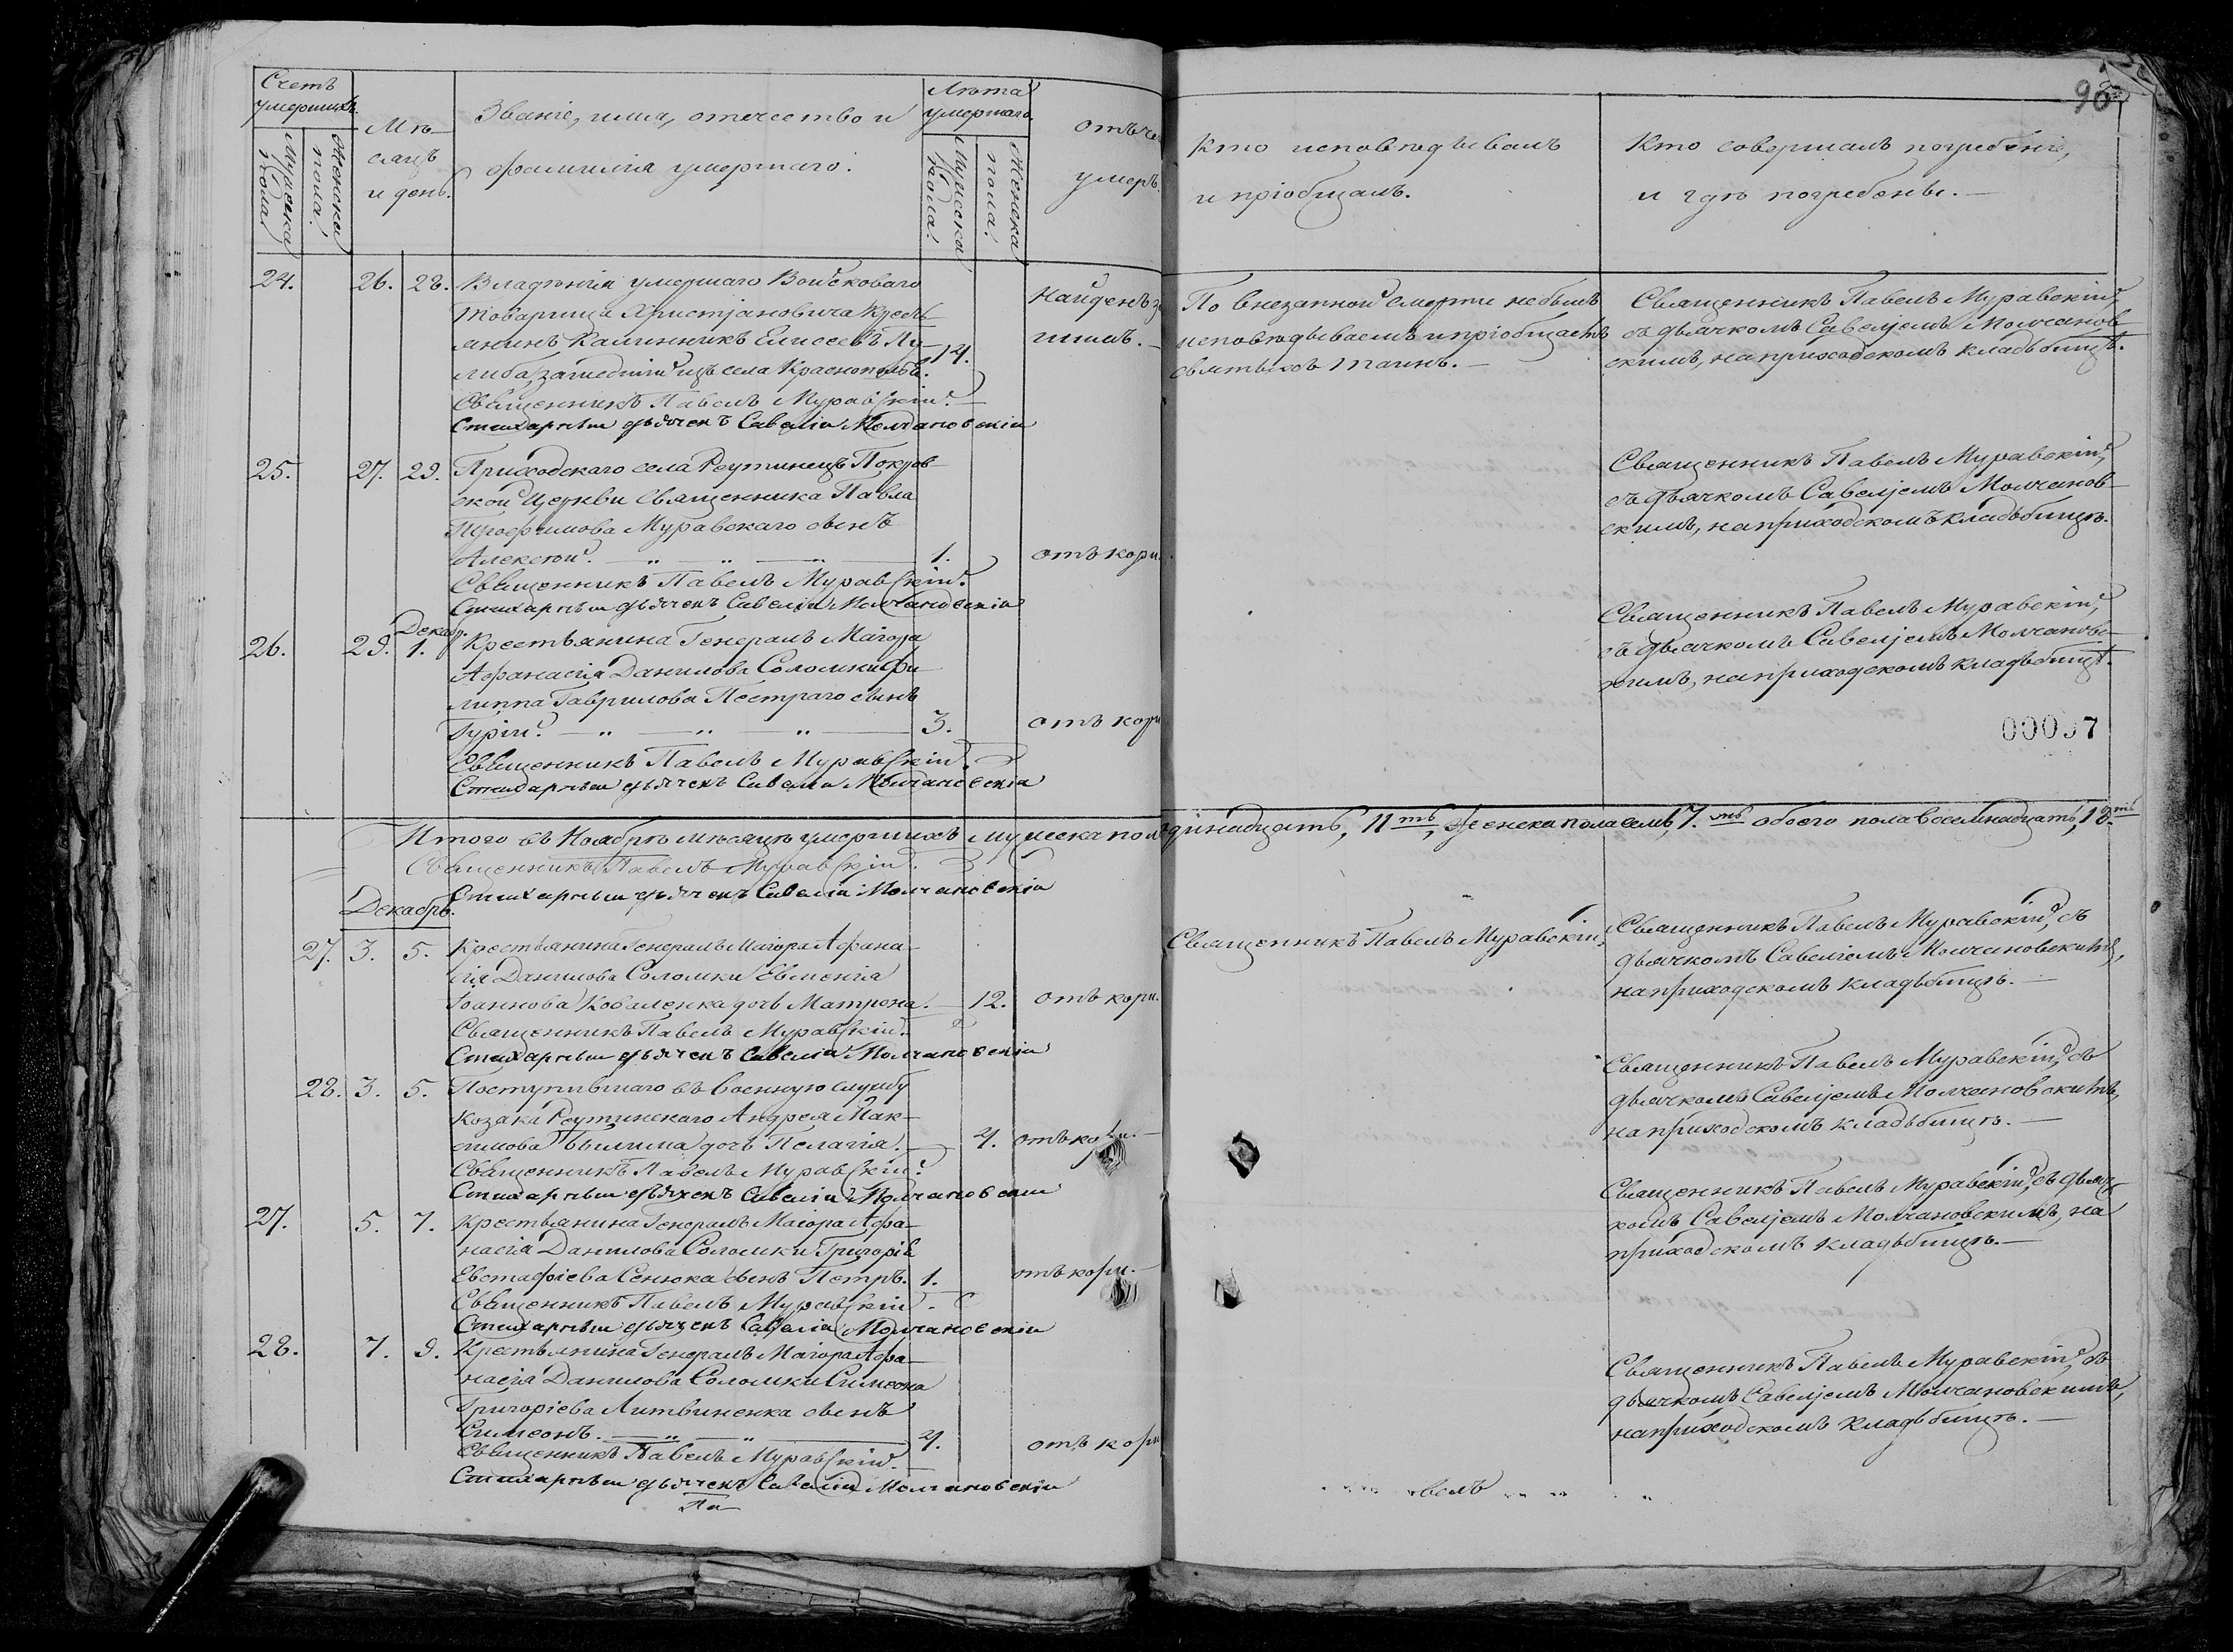 Счетъ
умершихъ.
Мужеска
пола.
Женска
пола.
Мѣ-
сяцъ
и день.
Званіе, имя, отечество и
фамилія умершаго.
Лѣта
умершаго.
Мужеска
пола.
Женска
пола.
отъ че
умеръ.
24. 26. 28. Владѣнія умершаго Войсковаго
Товарища Христіановича Кресть-
янинъ Калинникъ Елисеевъ
либа, зашедшій изъ села Краснополья. 14.
Найденъ
шимъ.
Священникъ Павелъ Муравскій.
Стихарный дьячекъ Савелій Молчановскій
25. 27. 29. Приходскаго села Реутинецъ Покров-
ской Церкви Священника Павла
Трофимова Муравскаго сынъ
Алексѣй. — „ — „ — „ — 1. отъ кори.
Священникъ Павелъ Муравскій.
Стихарный дьячекъ Савелій Молчановскій
Декабр.
26. 29. 1. Крестьянина Генералъ Маіора
Афанасія Данилова Соломки Фи-
липпа Гаврилова Пестраго сынъ
Гурій. — „ — „ „ — 3. отъ кори
Священникъ Павелъ Муравскій.
Стихарный дьячекъ Савелій Молчановскій
Итого въ Ноябрѣ мѣсяцѣ умершихъ мужеска пола одинадцать, 11ть, женска пола семь, 7.мь обоего пола восемнадцать, 18.ть
Священникъ Павелъ Муравскій.
Стихарный дьячекъ Савелій Молчановскій
Декабрь.
27. 3. 5. Крестьянина Генералъ Маіора Афана-
сія Данилова Соломки Евменія
Іоаннова Коваленка дочь Матрона. — 12. отъ кори.
Священникъ Павелъ Муравскій.
Стихарный дьячекъ Савелій Молчановскій
28. 3. 5. Поступившаго въ военную службу
козака Реутинскаго Андрея Мак-
симова Билима дочь Пелагія. — 4. отъ кори. —
Священникъ Павелъ Муравскій.
Стихарный дьячекъ Савелій Молчановскій
27. 5. 7. Крестьянина Генералъ Маіора Афа-
насія Данилова Соломки Григорія
Евстафіева Сенюка сынъ Петръ. 1. отъ кори. —
Священникъ Павелъ Муравскій.
Стихарный дьячекъ Савелій Молчановскій
28. 7. 9. Крестьянина Генералъ Маіора Афа-
насія Данилова Соломки Симеона
Григоріева Литвиненка сынъ
Симеонъ. — „ — „ — 4. отъ кори
Священникъ Павелъ Муравскій.
Стихарный дьячекъ Савелій Молчановскій
Па
Кто исповѣдывалъ
и пріобщалъ.
Кто совершалъ погребеніе,
и гдѣ погребены. —
По внезапной смерти не былъ
исповѣдываемъ и пріобщаемъ
святыхъ таинъ. —
Священникъ Павелъ Муравскій,
съ дьячкомъ Савеліемъ Молчанов-
скимъ, на приходскомъ кладьбищѣ.
Священникъ Павелъ Муравскій,
съ дьячкомъ Савеліемъ Молчанов-
скимъ, на приходскомъ кладьбищѣ.
Священникъ Павелъ Муравскій,
съ дьячкомъ Савеліемъ Молчановс-
кимъ, на приходскомъ кладьбищѣ.
00097
Священникъ Павелъ Муравскій,
Священникъ Павелъ Муравскій, съ
дьячкомъ Савеліемъ Молчановскимъ,
на приходскомъ кладьбищѣ. —
Священникъ Павелъ Муравскій, съ
дьячкомъ Савеліемъ Молчановскимъ,
на приходскомъ кладьбищѣ. —
Священникъ Павелъ Муравскій, съ дьяч-
комъ Савеліемъ Молчановскимъ, на
приходскомъ кладьбищѣ. —
Священникъ Павелъ Муравскій, съ
дьячкомъ Савеліемъ Молчановскимъ,
на приходскомъ кладьбищѣ. —